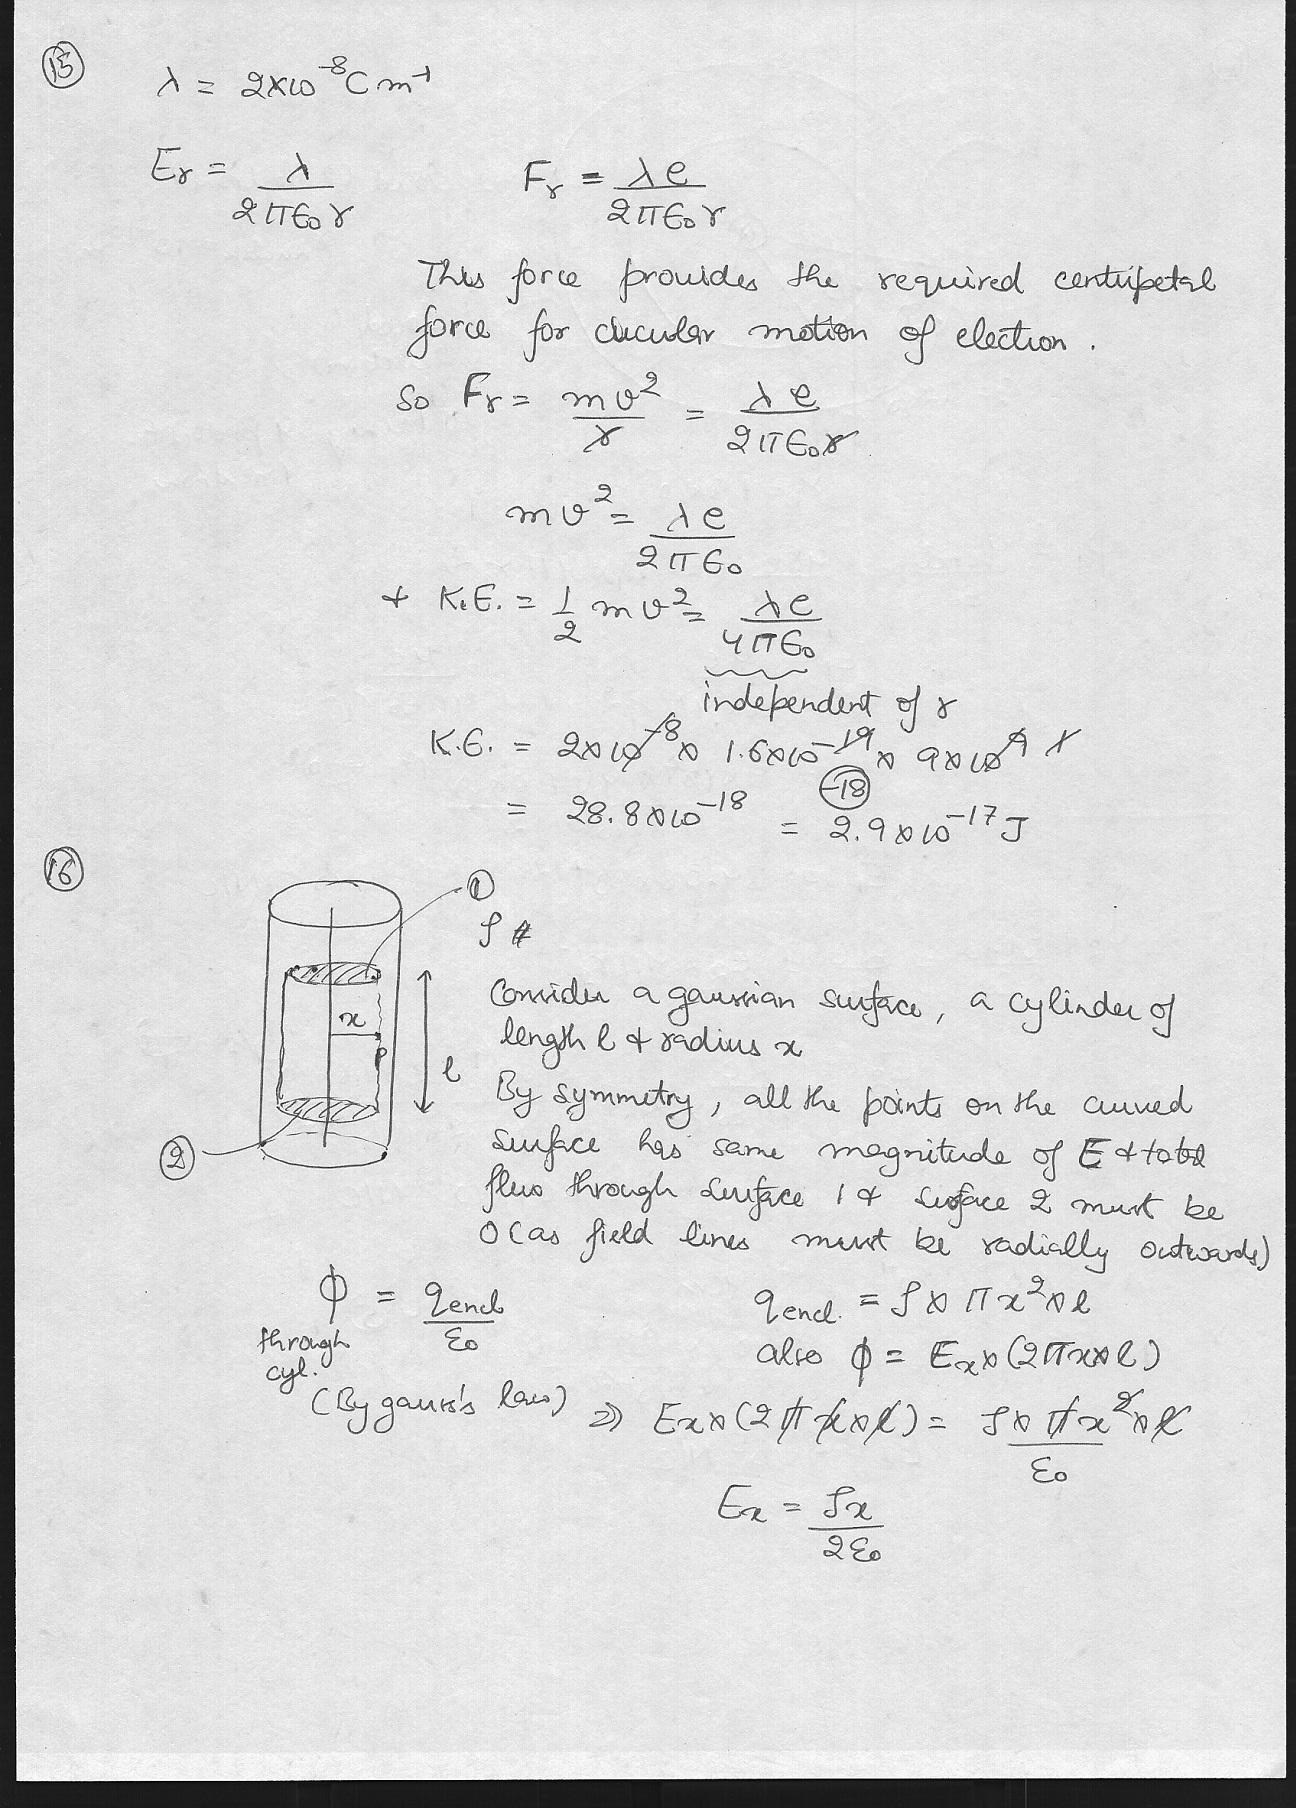 15
λ = 2×10⁻⁸ C m⁻¹
Er = λ / 2πε₀r    Fr = λe / 2πε₀r
This force provides the required centripetal
force for circular motion of election.
So Fr = mv² / r = λe / 2πε₀r
mv² = λe / 2πε₀
& K.E. = 1/2 mv² = λe / 4πε₀
independent of r
K.E. = 2×10⁻⁸ × 1.6×10⁻¹⁹ × 9×10⁹
-18
= 28.8×10⁻¹⁸ = 2.9×10⁻¹⁷ J
16
1
ρ
Consider a gaussian surface, a cylinder of
length l & radius x
x
p
l
By symmetry, all the points on the curved
surface has same magnitude of E & total
2
flux through surface 1 & surface 2 must be
0 (as field lines must be radially outwards)
ϕ = qencl / ε₀    qencl. = ρ × πx² × l
through
cyl.
also ϕ = Ex × (2πx×l)
(By gauss's law) ⇒ Ex × (2π x × l) = ρ × πx² × l / ε₀
Ex = ρx / 2ε₀